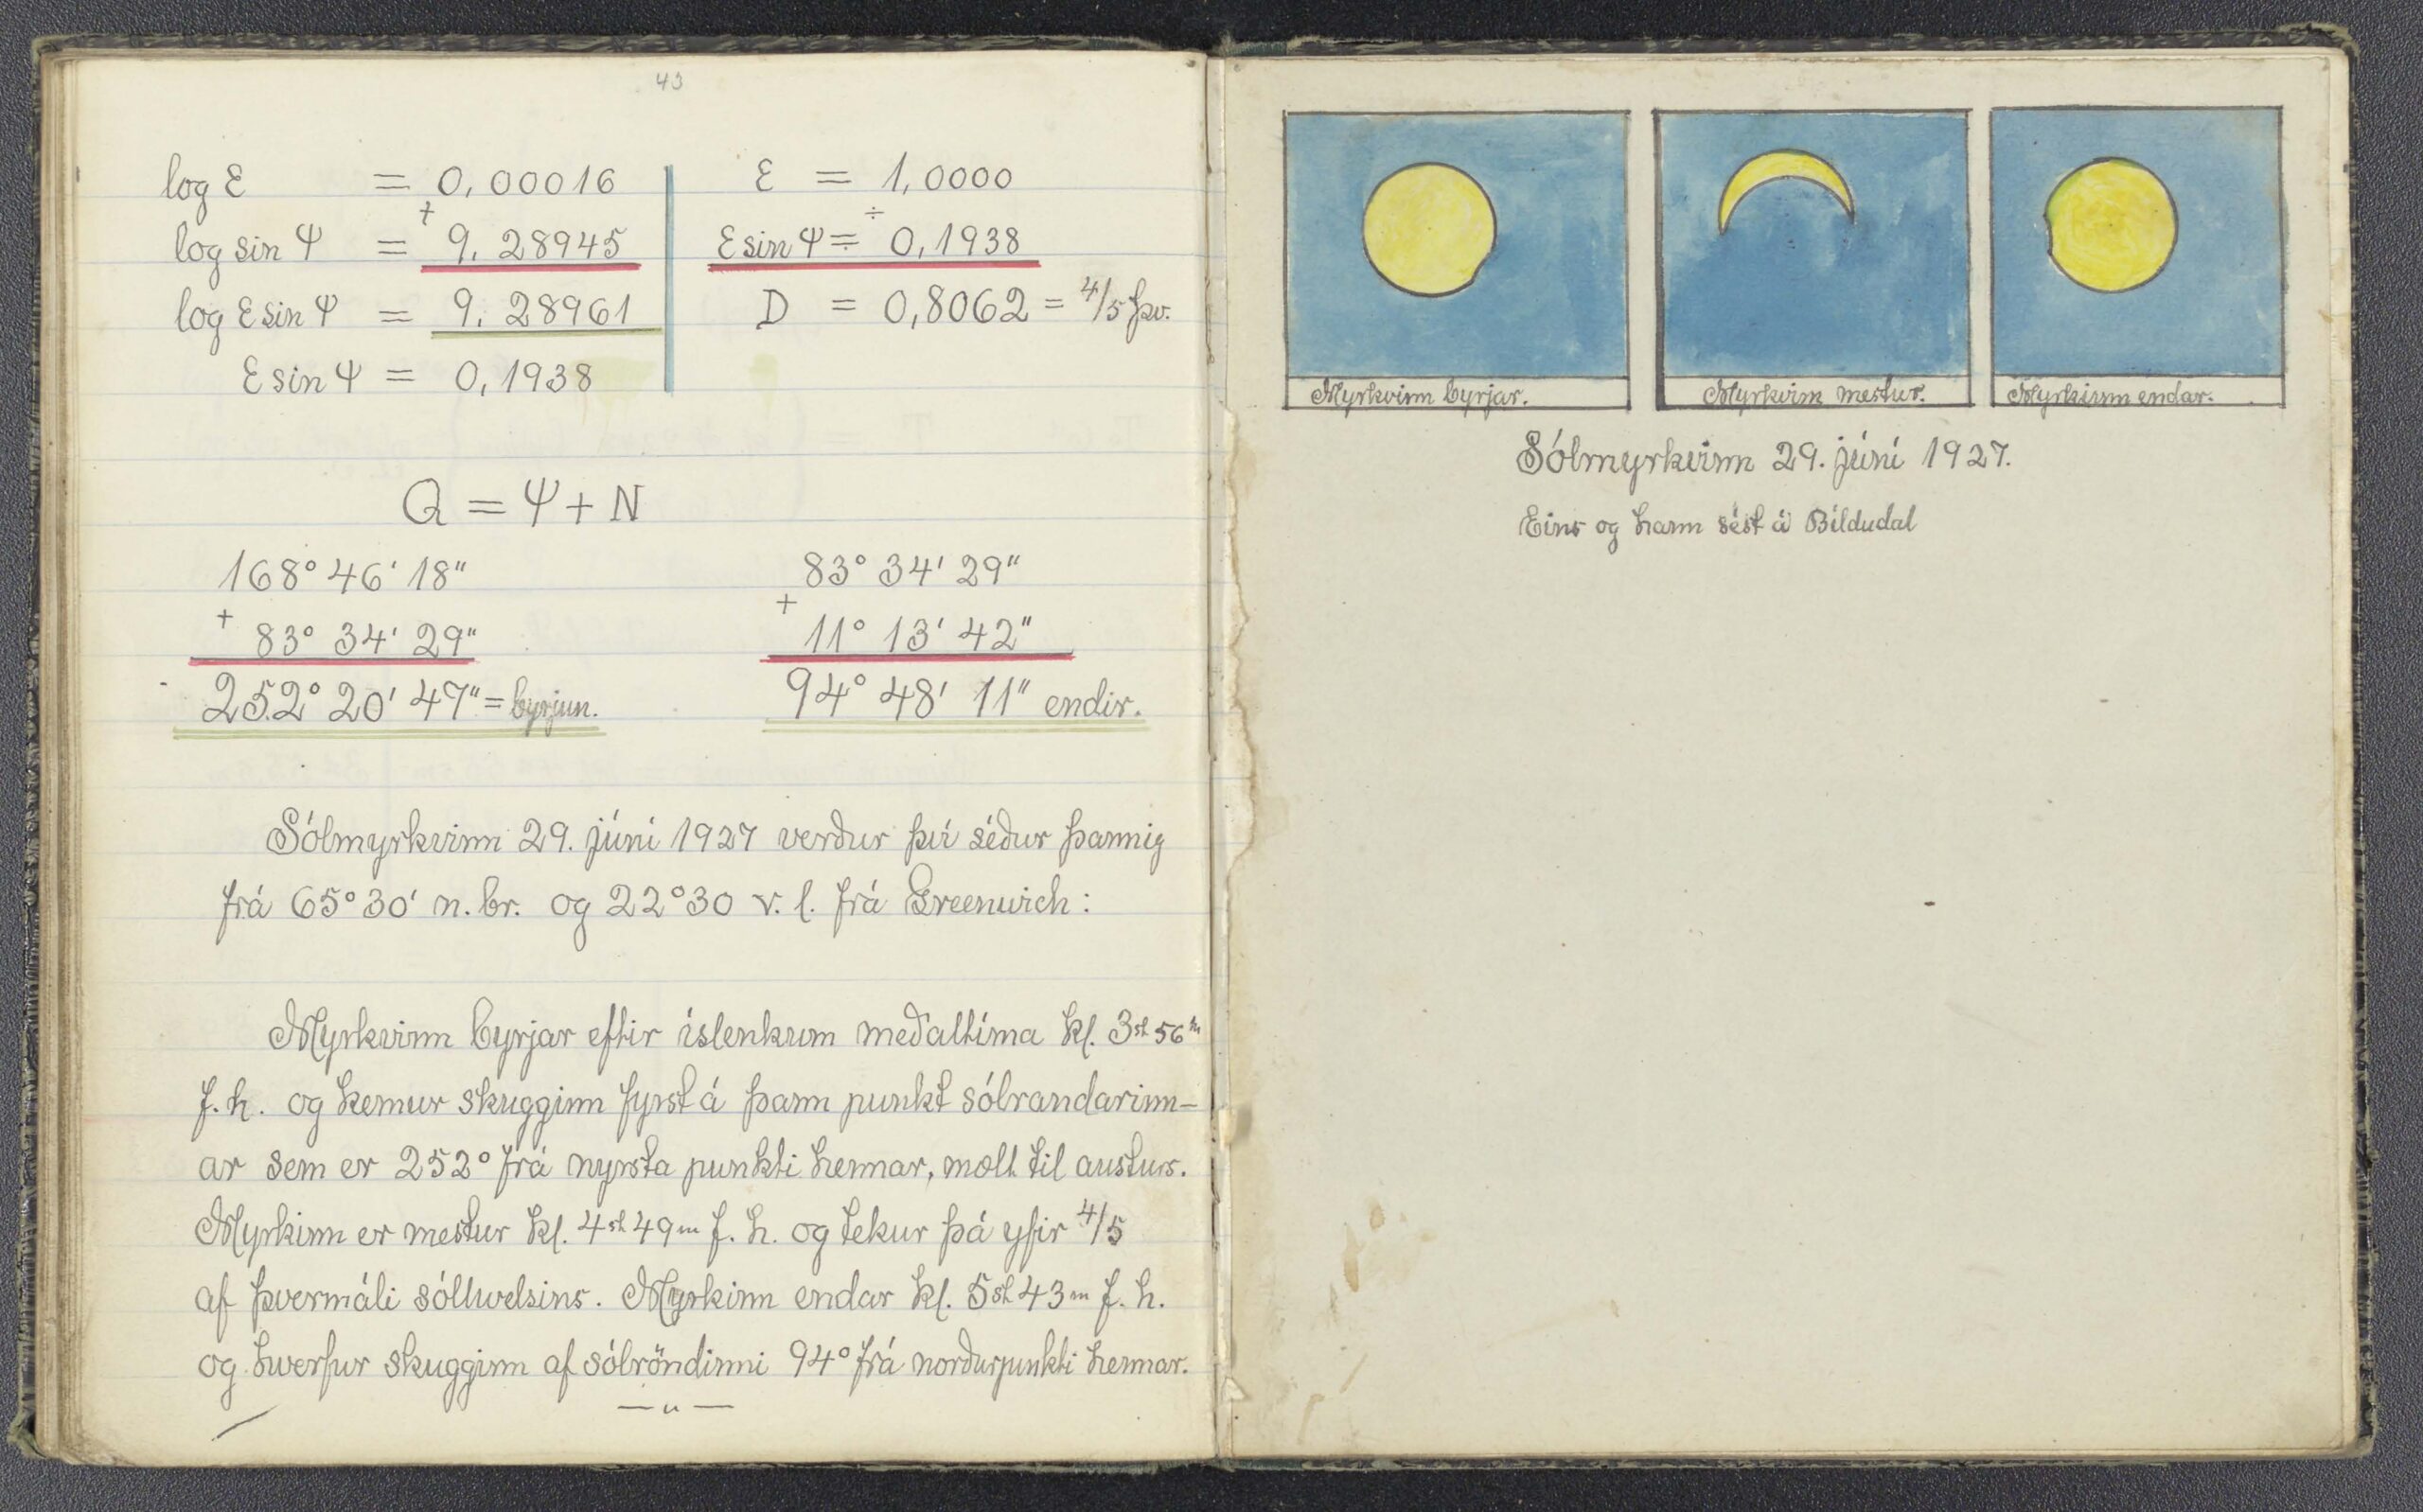 43
log Ɛ = 0,00016
+
log sin Ψ = 9.28945
log Ɛ sin Ψ = 9.28961
Ɛ sin Ψ = 0,1938
Ɛ = 1,0000
÷
Ɛ sin Ψ = 0,1938
D = 0,8062 = 4/5 þv.
Q = Ψ + N
168° 46' 18"
+ 83° 34' 29"
252° 20' 47" = byrjun.
83° 34' 29"
+
11° 13' 42"
94° 48' 11" endir.
Sólmyrkvinn 29. júní 1927 verður því séður þannig
frá 65° 30' n. br. og 22° 30 v. l. frá Greenwich:
Myrkvinn byrjar eftir íslenkum meðaltíma kl. 3st 56m
f. h. og kemur skugginn fyrst á þann punkt sólrandarinn-
ar sem er 252° frá nyrsta punkti hennar, mælt til austurs.
Myrkinn er mestur kl. 4st 49m f. h. og tekur þá yfir 4/5
af þvermáli sólhvelsins. Myrkinn endar kl. 5st 43m f. h.
og hverfur skugginn af sólröndinni 94° frá norðurpunkti hennar.
— " —
Myrkvinn byrjar.
Myrkvinn mestur.
Myrkinn endar.
Sólmyrkvinn 29. júní 1927.
Eins og hann sést á Bíldudal